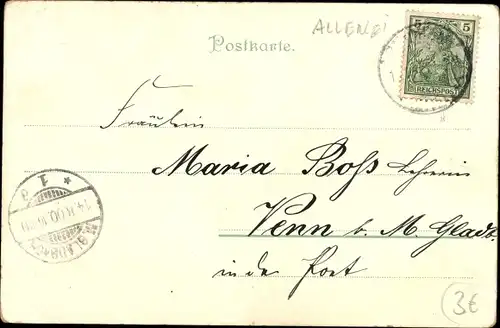 ALLEN
Postkarte.
5 5
REICHSPOST
Fräulein
Maria Boss Lehrerin
Venn b. M. Gladb.
in der Post
3€